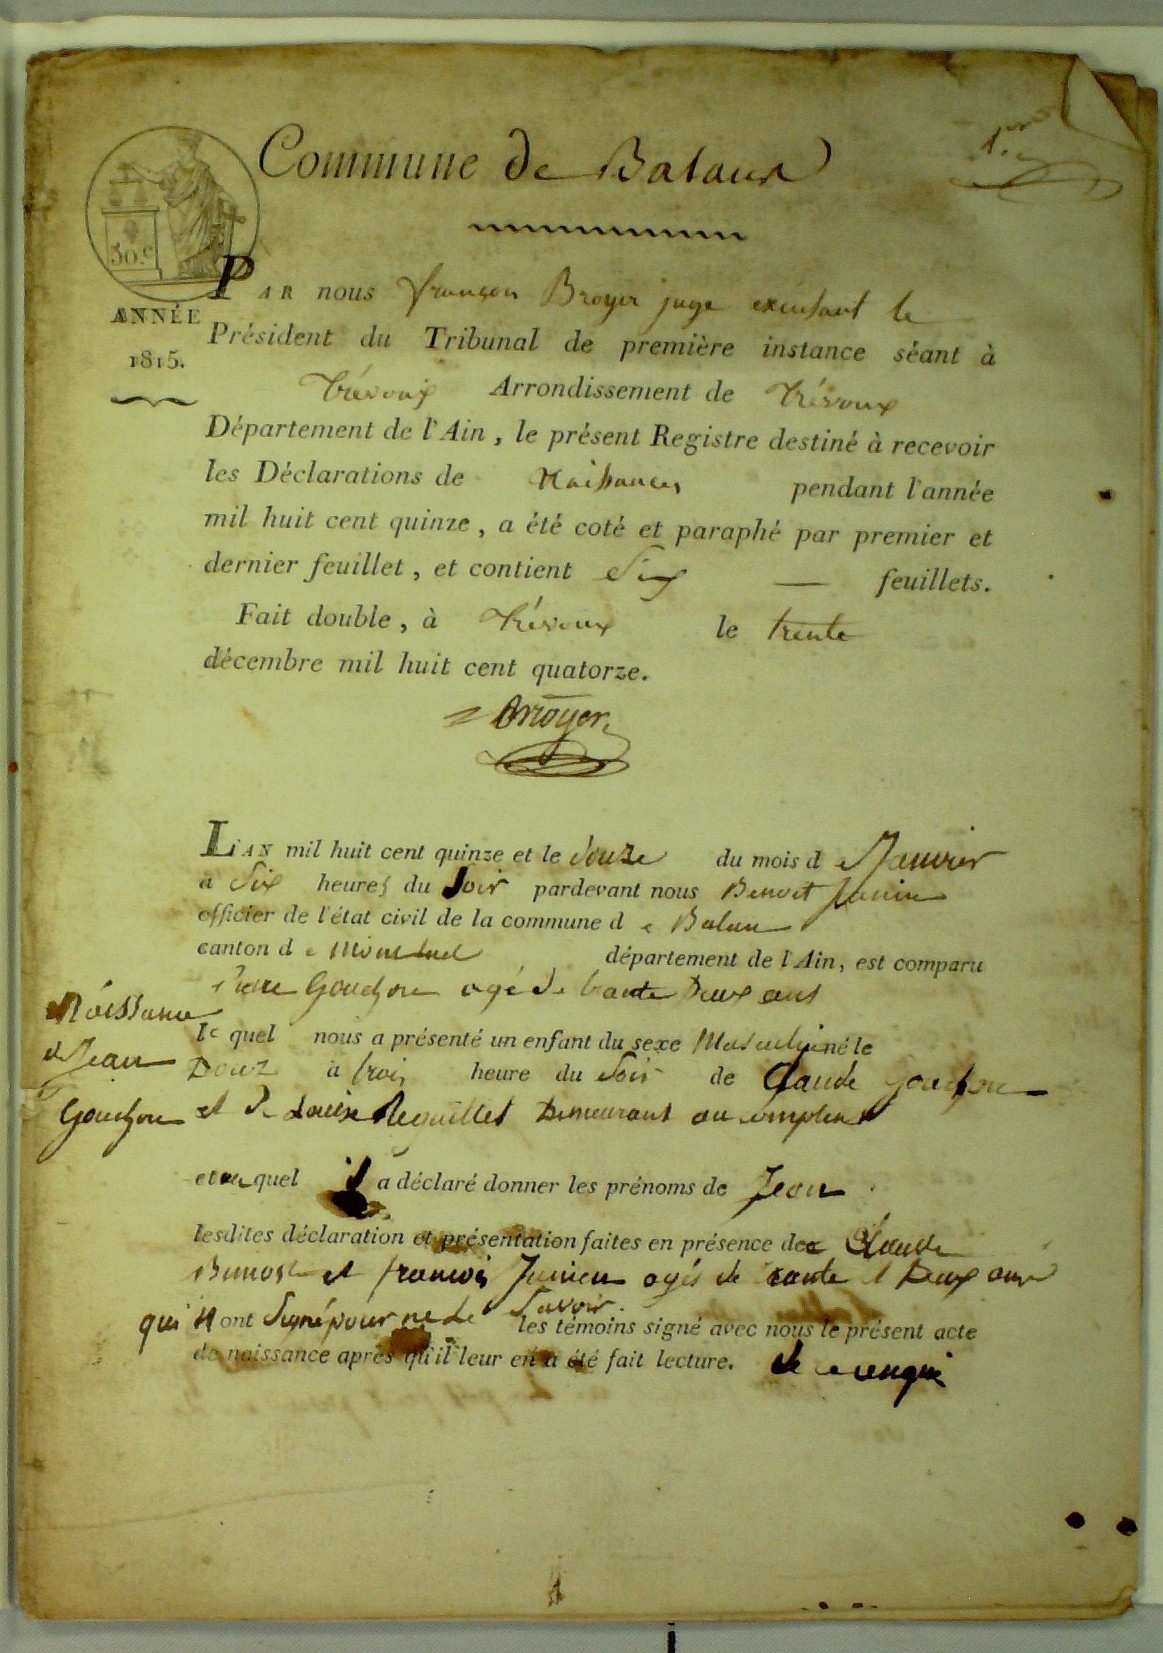 1.er
Commune de Balaun
30.c
ANNÉE
1815.
PAR nous françois Broyer juge exerçant le
Président du Tribunal de première instance séant à
Trévoux Arrondissement de Trévoux
Département de l'Ain, le présent Registre destiné à recevoir
les Déclarations de Naissances pendant l'année
mil huit cent quinze, a été coté et paraphé par premier et
dernier feuillet, et contient Six — feuillets.
Fait double, à Trévoux le trente
décembre mil huit cent quatorze.
Broyer
L'AN mil huit cent quinze et le douze du mois de Janvier
a Six heures du Soir pardevant nous Benoit Junin
officier de l'état civil de la commune de Balan
canton de Montluel département de l'Ain, est comparu
Pierre Gouchon agé de trante Deux ans
Naissance
de Jean
Gouchon
le quel nous a présenté un enfant du sexe Masculin né le
Douz à trois heure du Soir de Claude Gouchon
et de Louise Reguillet Demeurant au
et au quel il a déclaré donner les prénoms de Jean
lesdites déclaration et présentation faites en présence de Claude
et francois Junien agés de trante et Deux ans
qui N ont Signé pour ne le Savoir.
les témoins signé avec nous le présent acte
de naissance après qu'il leur en a été fait lecture. de ce enquis